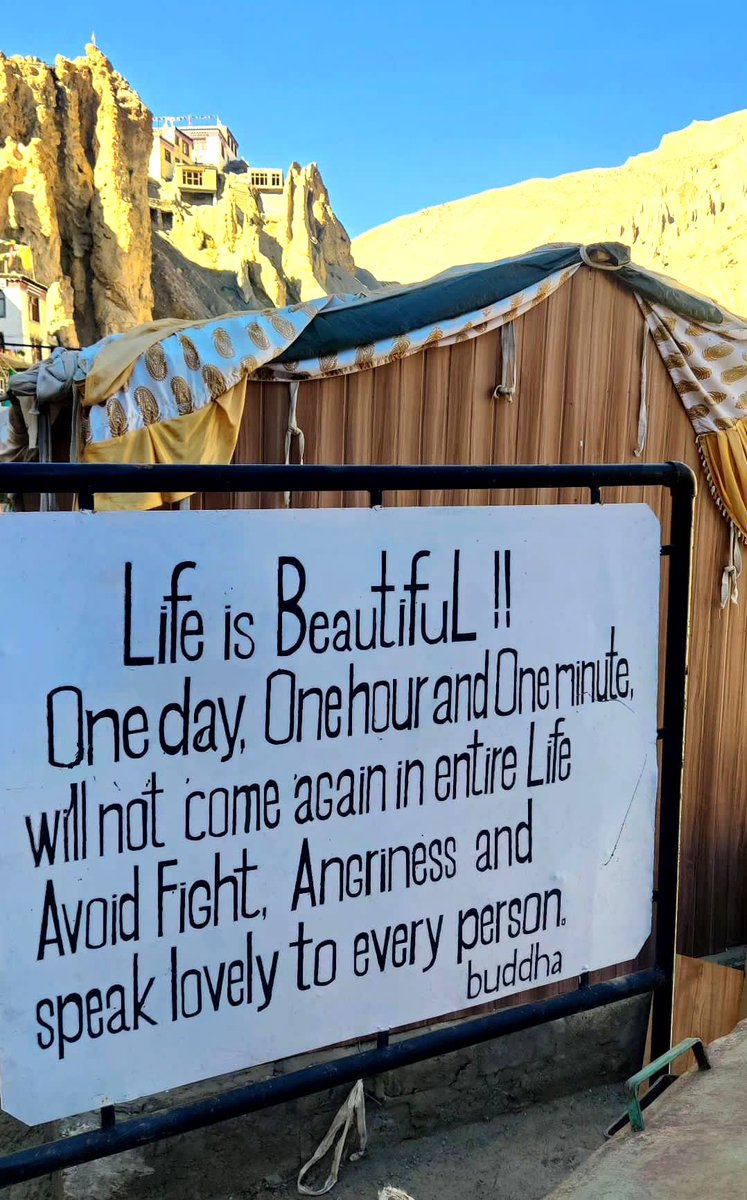 Life is Beautiful !!
One day, One hour and One minute,
will not come again in entire Life
Avoid Fight, Angriness and
speak lovely to every person.
buddha